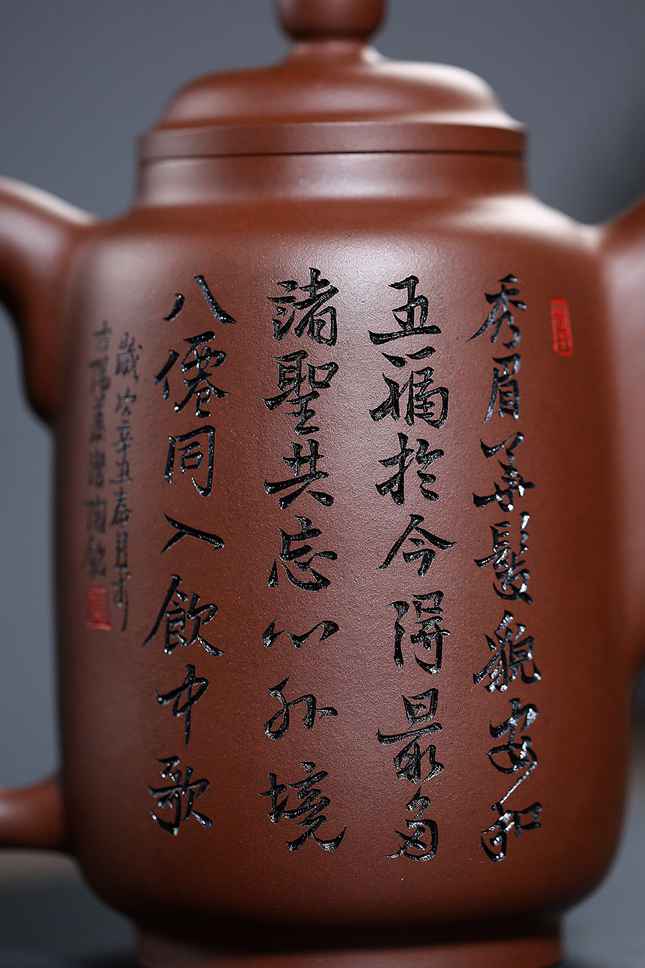 秀眉華髮貌安和
五福於今得最多
諸聖共忘心外境
八僊同入飲中歌
歲次辛丑春月於
古陽羨